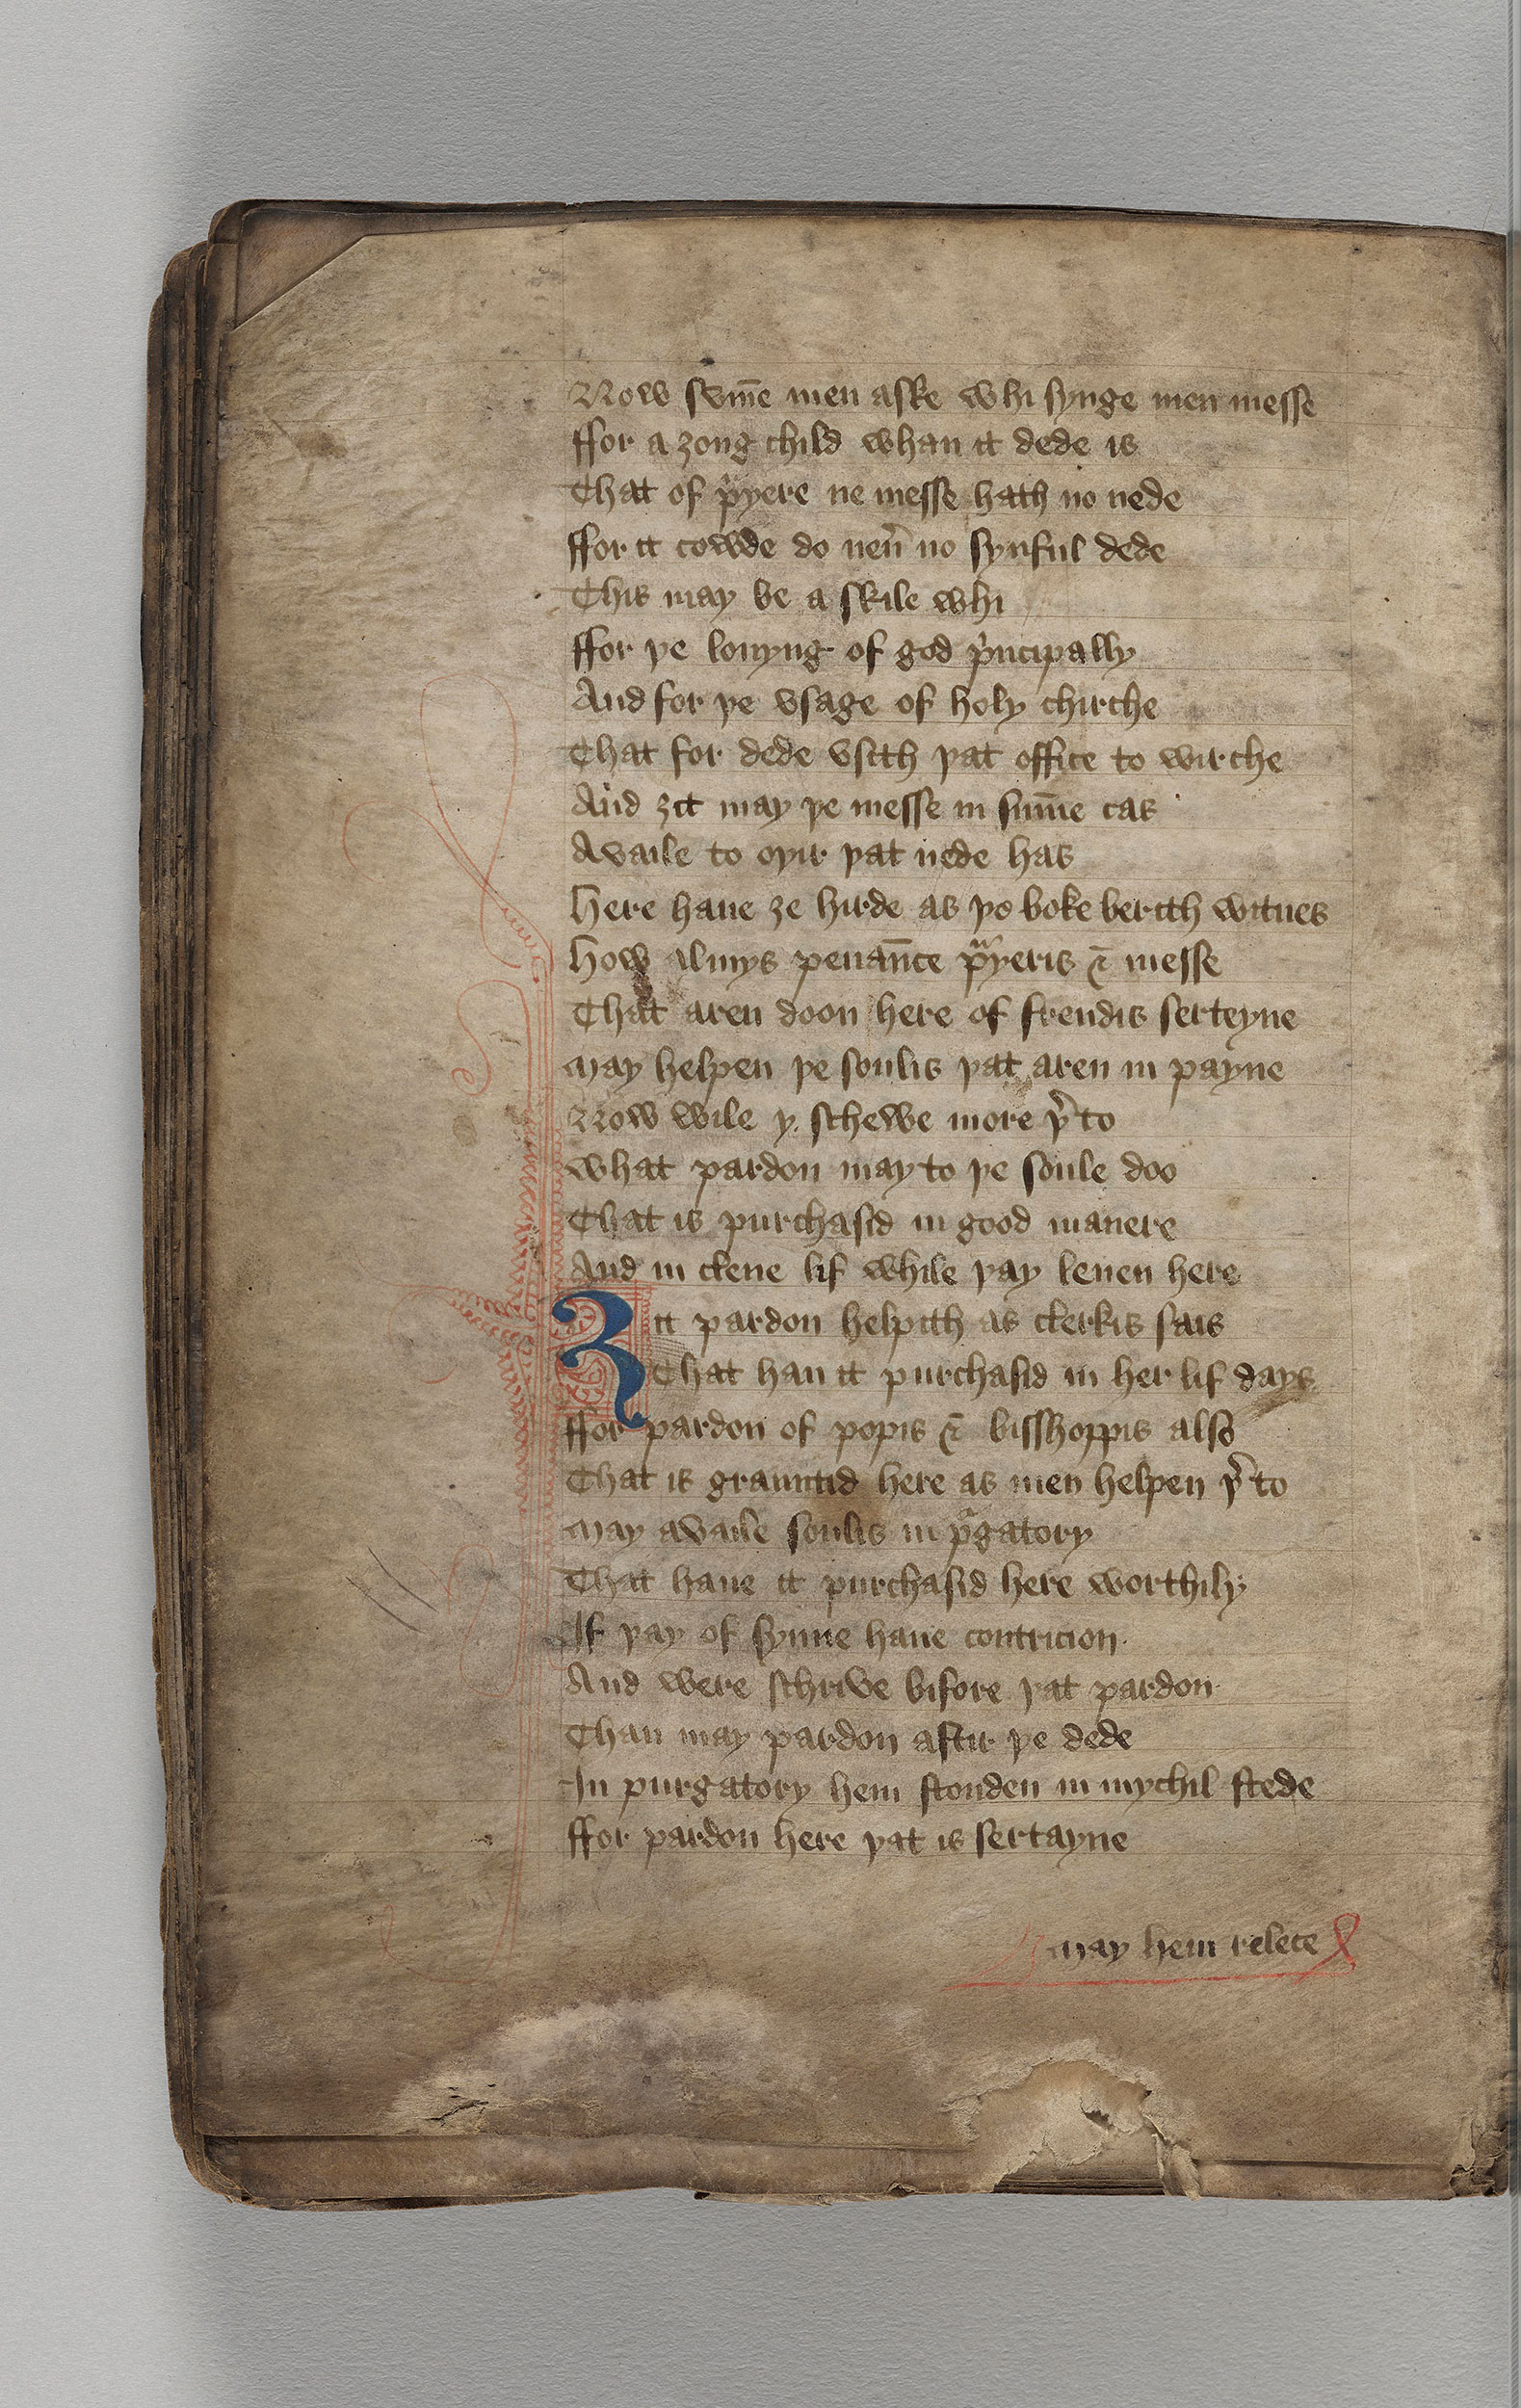 Now sum̅e men aske whi synge men messe
ffor a ȝong child whan it dede is
That of p̍yere ne messe hath no nede
ffor it cowde do neu̍ no synful dede
This may be a skile whi
ffor þe louyng of god p̍ncipally
And for þe vsage of holy chirche
That for dede vsith þat office to wirche
And ȝit may þe messe in sum̅e cas
Availe to oþir þat nede has
Here haue ȝe hirde as þo boke berith witnes
How almys penan̅ce pᵃyeris ⁊ messe
That aren doon here of frendis serteyne
May helpen þe soulis þat aren in payne
Now wile y schewe more þ̍ to
what pardon may to þe soule doo
That is purchasid in good manere
And in clene lif while þay leuen here
Ȝit pardon helpith as clerkis sais
That han it purchasid in her lif days
ffor pardon of popis ⁊ bisshoppis also
That is grauntid here as men helpen þ̍ to
May availe soulis in p̍gatory
That haue it purchasid here worthily
If þay of synne haue contricion
And were schrive bifore þat pardon
Than may pardon aftir þe dede
In purgatory hem stonden in mychil stede
ffor pardon here þat is sertayne
may hem relece